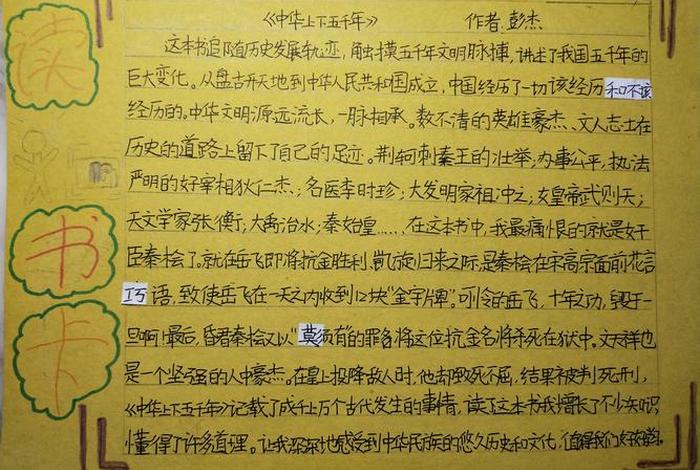 《中华上下五千年》 作者:彭杰
读
这本书追随历史发展轨迹，触摸五千年文明脉搏，讲述了我国五千年的
巨大变化。从盘古开天地到中华人民共和国成立，中国经历了一切该经历和不该
经历的。中华文明源远流长，一脉相承。数不清的英雄豪杰、文人志士在
历史的道路上留下了自己的足迹。荆轲刺秦王的壮举；办事公平，执法
严明的好宰相狄仁杰；名医李时珍；大发明家祖冲之；女皇帝武则天；
书
天文学家张衡；大禹治水；秦始皇……，在这本书中，我最痛恨的就是奸
臣秦桧了。就在岳飞即将抗金胜利、凯旋归来之际，是秦桧在宋高宗面前花言
巧语，致使岳飞在一天之内收到12块“金字牌”。可怜的岳飞，十年之功，毁于一
卡
旦啊！最后，昏君秦桧又以“莫须有的罪名将这位抗金名将杀死在狱中。文天祥也
是一个坚强的人中豪杰。在皇上投降敌人时，他却致死不屈，结果被判死刑，
《中华上下五千年》记载了成千上万个古代发生的事情，读了这本书我增长了不少知识
懂得了许多道理。让我深深地感受到中华民族的悠久历史和文化，值得我们好好